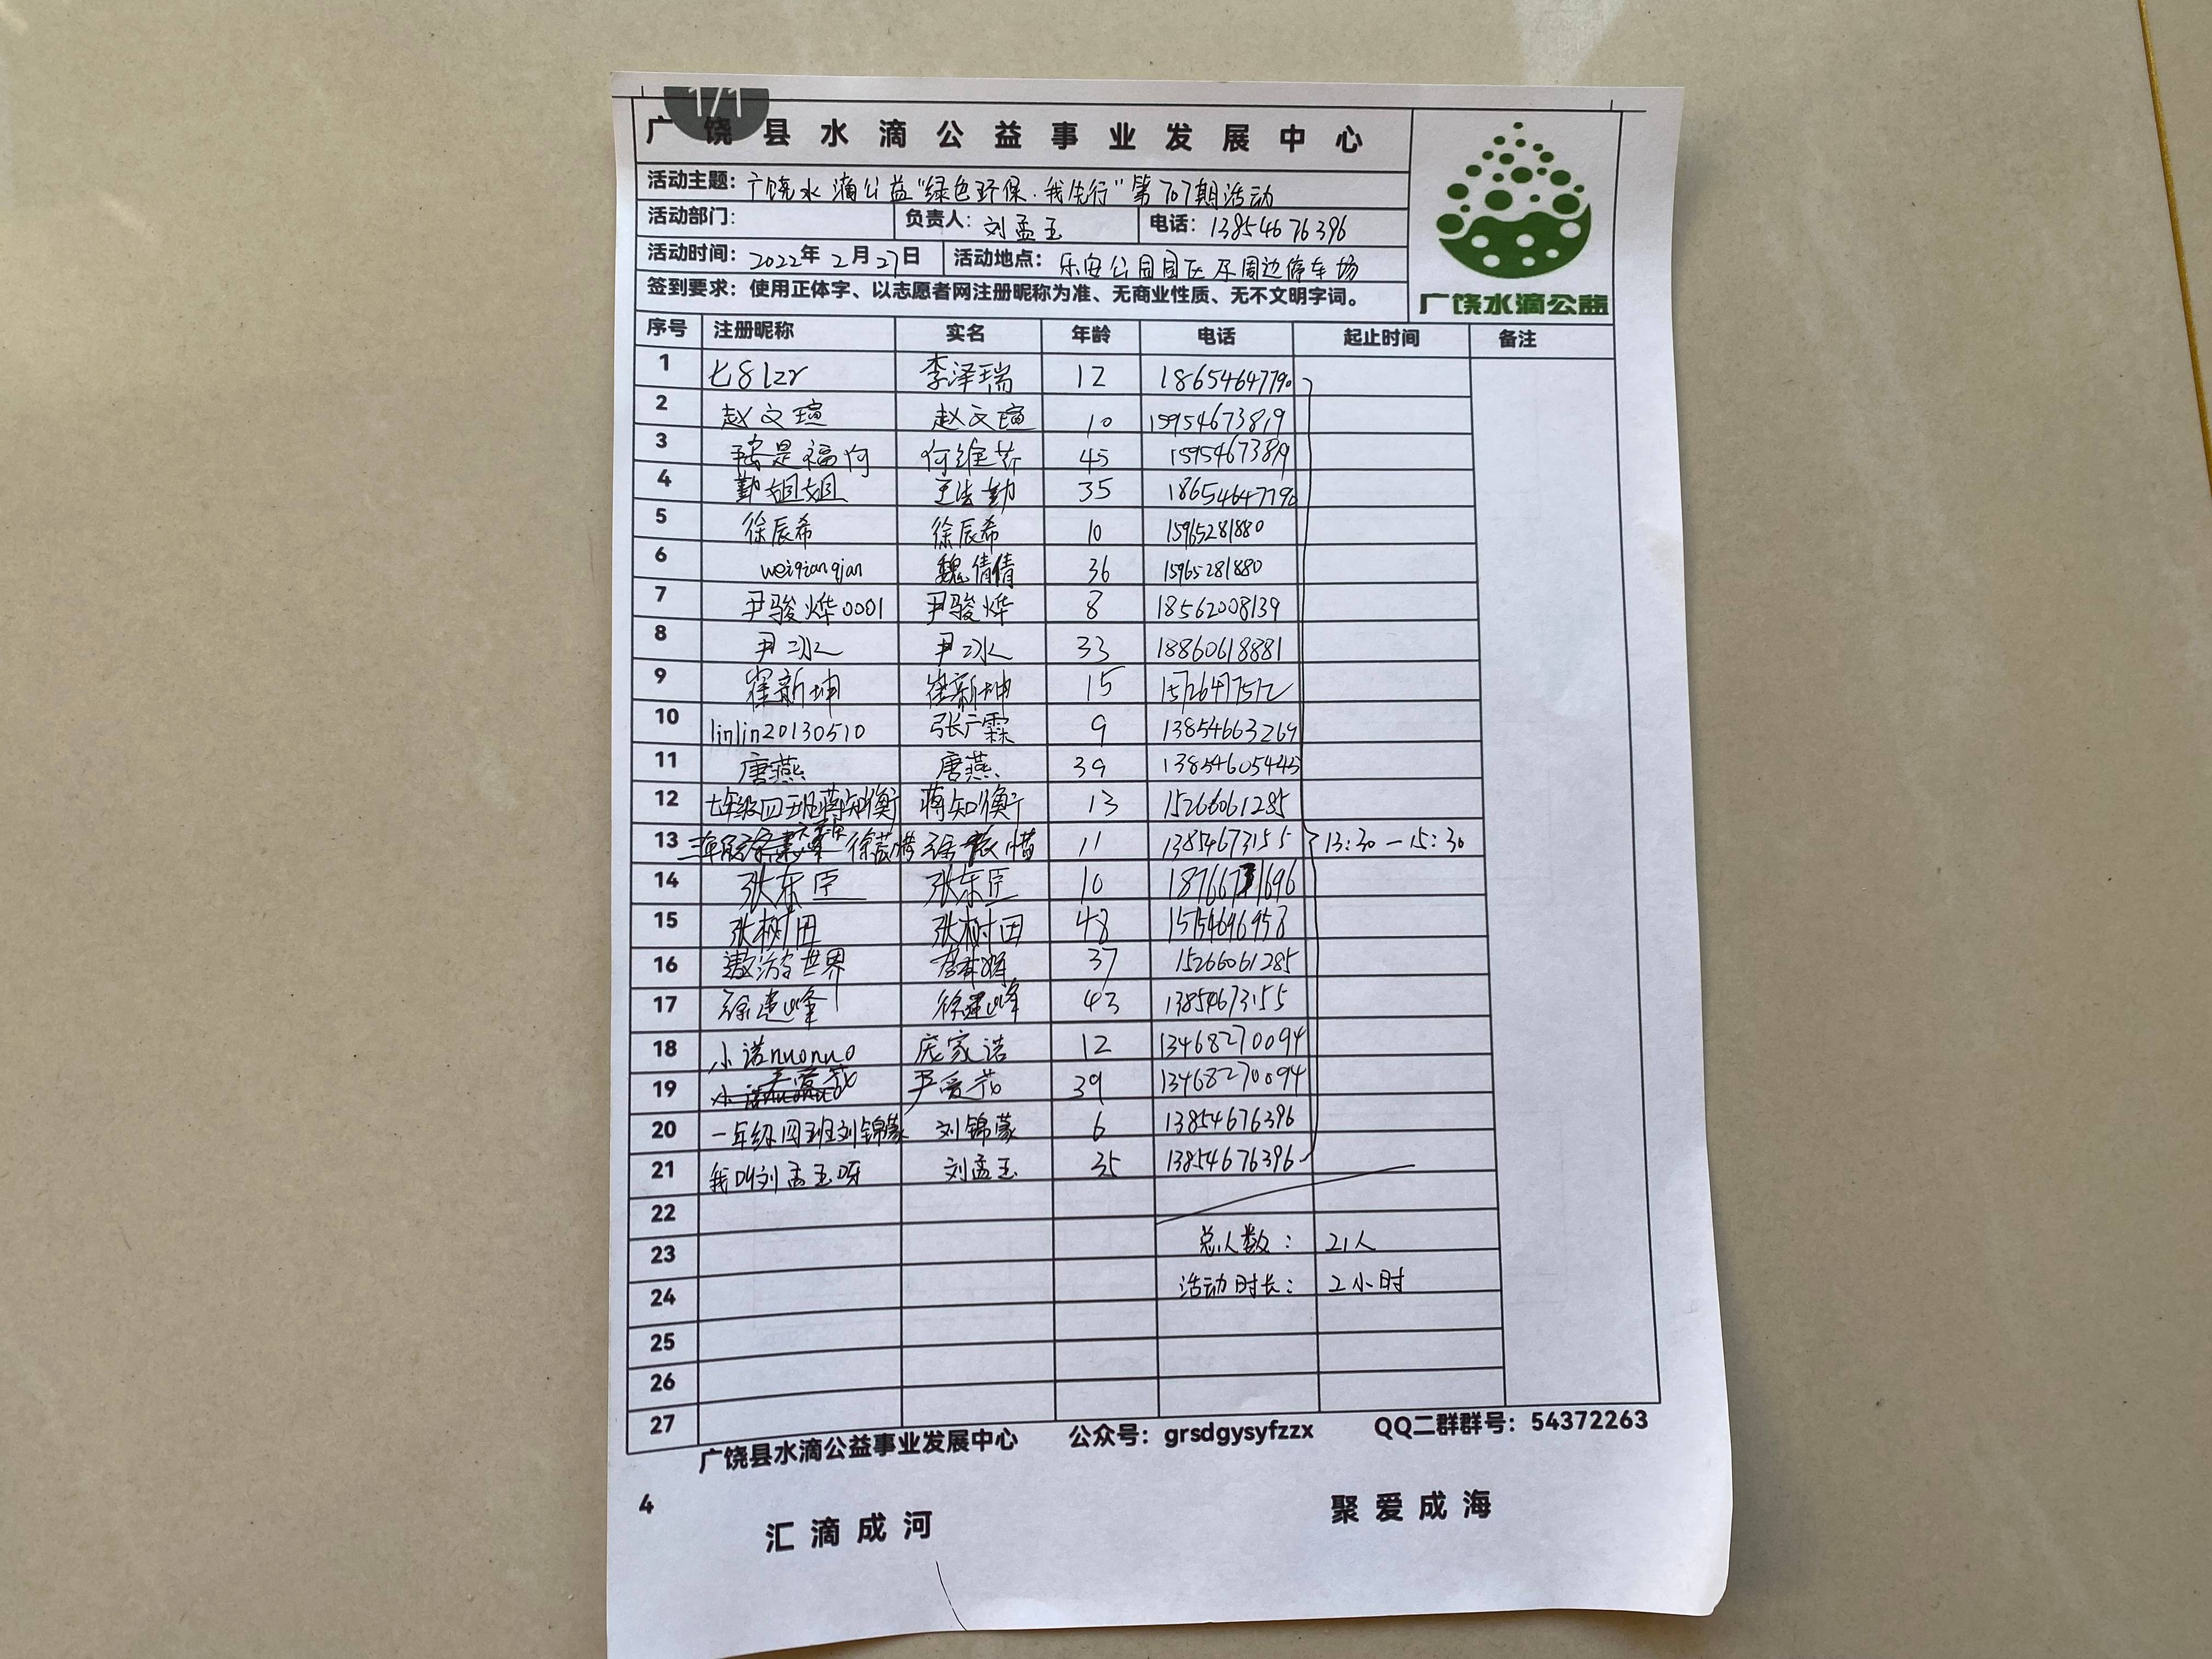 1/1
广饶县水滴公益事业发展中心
活动主题：广饶水滴公益"绿色环保·我先行"第707期活动
活动部门： 负责人：刘孟玉 电话：13854676396
活动时间：2022年2月27日 活动地点：乐安公园园区及周边停车场
签到要求：使用正体字、以志愿者网注册昵称为准、无商业性质、无不文明字词。
广饶水滴公益
序号 注册昵称 实名 年龄 电话 起止时间 备注
1 七8lzr 李泽瑞 12 18654647790
2 赵文瑄 赵文瑄 10 15954673819
3 是福何 何维芹 45 15954673819
4 勤姐姐 勤 35 18654647790
5 徐辰希 徐辰希 10 15965281880
6 weiqianqian 魏倩倩 36 15965281880
7 尹骏烨0001 尹骏烨 8 18562008139
8 尹冰 尹冰 33 18860618881
9 崔新坤 崔新坤 15 15726477512
10 linlin20130510 张广霖 9 13854663269
11 唐燕 唐燕 39 13854605445
12 七年级四班蒋知衡 蒋知衡 13 15266061285
13 徐 惜 徐 惜 11 13854673155 13:30—15:30
14 张东臣 张东臣 10 1876671696
15 张树田 张树田 48
16 遨游世界 37 15266061285
17 徐建峰 徐建峰 43 13854673155
18 小诺nuonuo 庞家诺 12 13468270094
19 尹爱花 尹爱花 39 13468270094
20 一年级四班刘锦蒙 刘锦蒙 6 13854676396
21 我叫刘孟玉呀 刘孟玉 35 13854676396
22
23 总人数： 21人
24 活动时长： 2小时
25
26
27
广饶县水滴公益事业发展中心 公众号：grsdgysyfzzx QQ二群群号：54372263
4
汇滴成河 聚爱成海